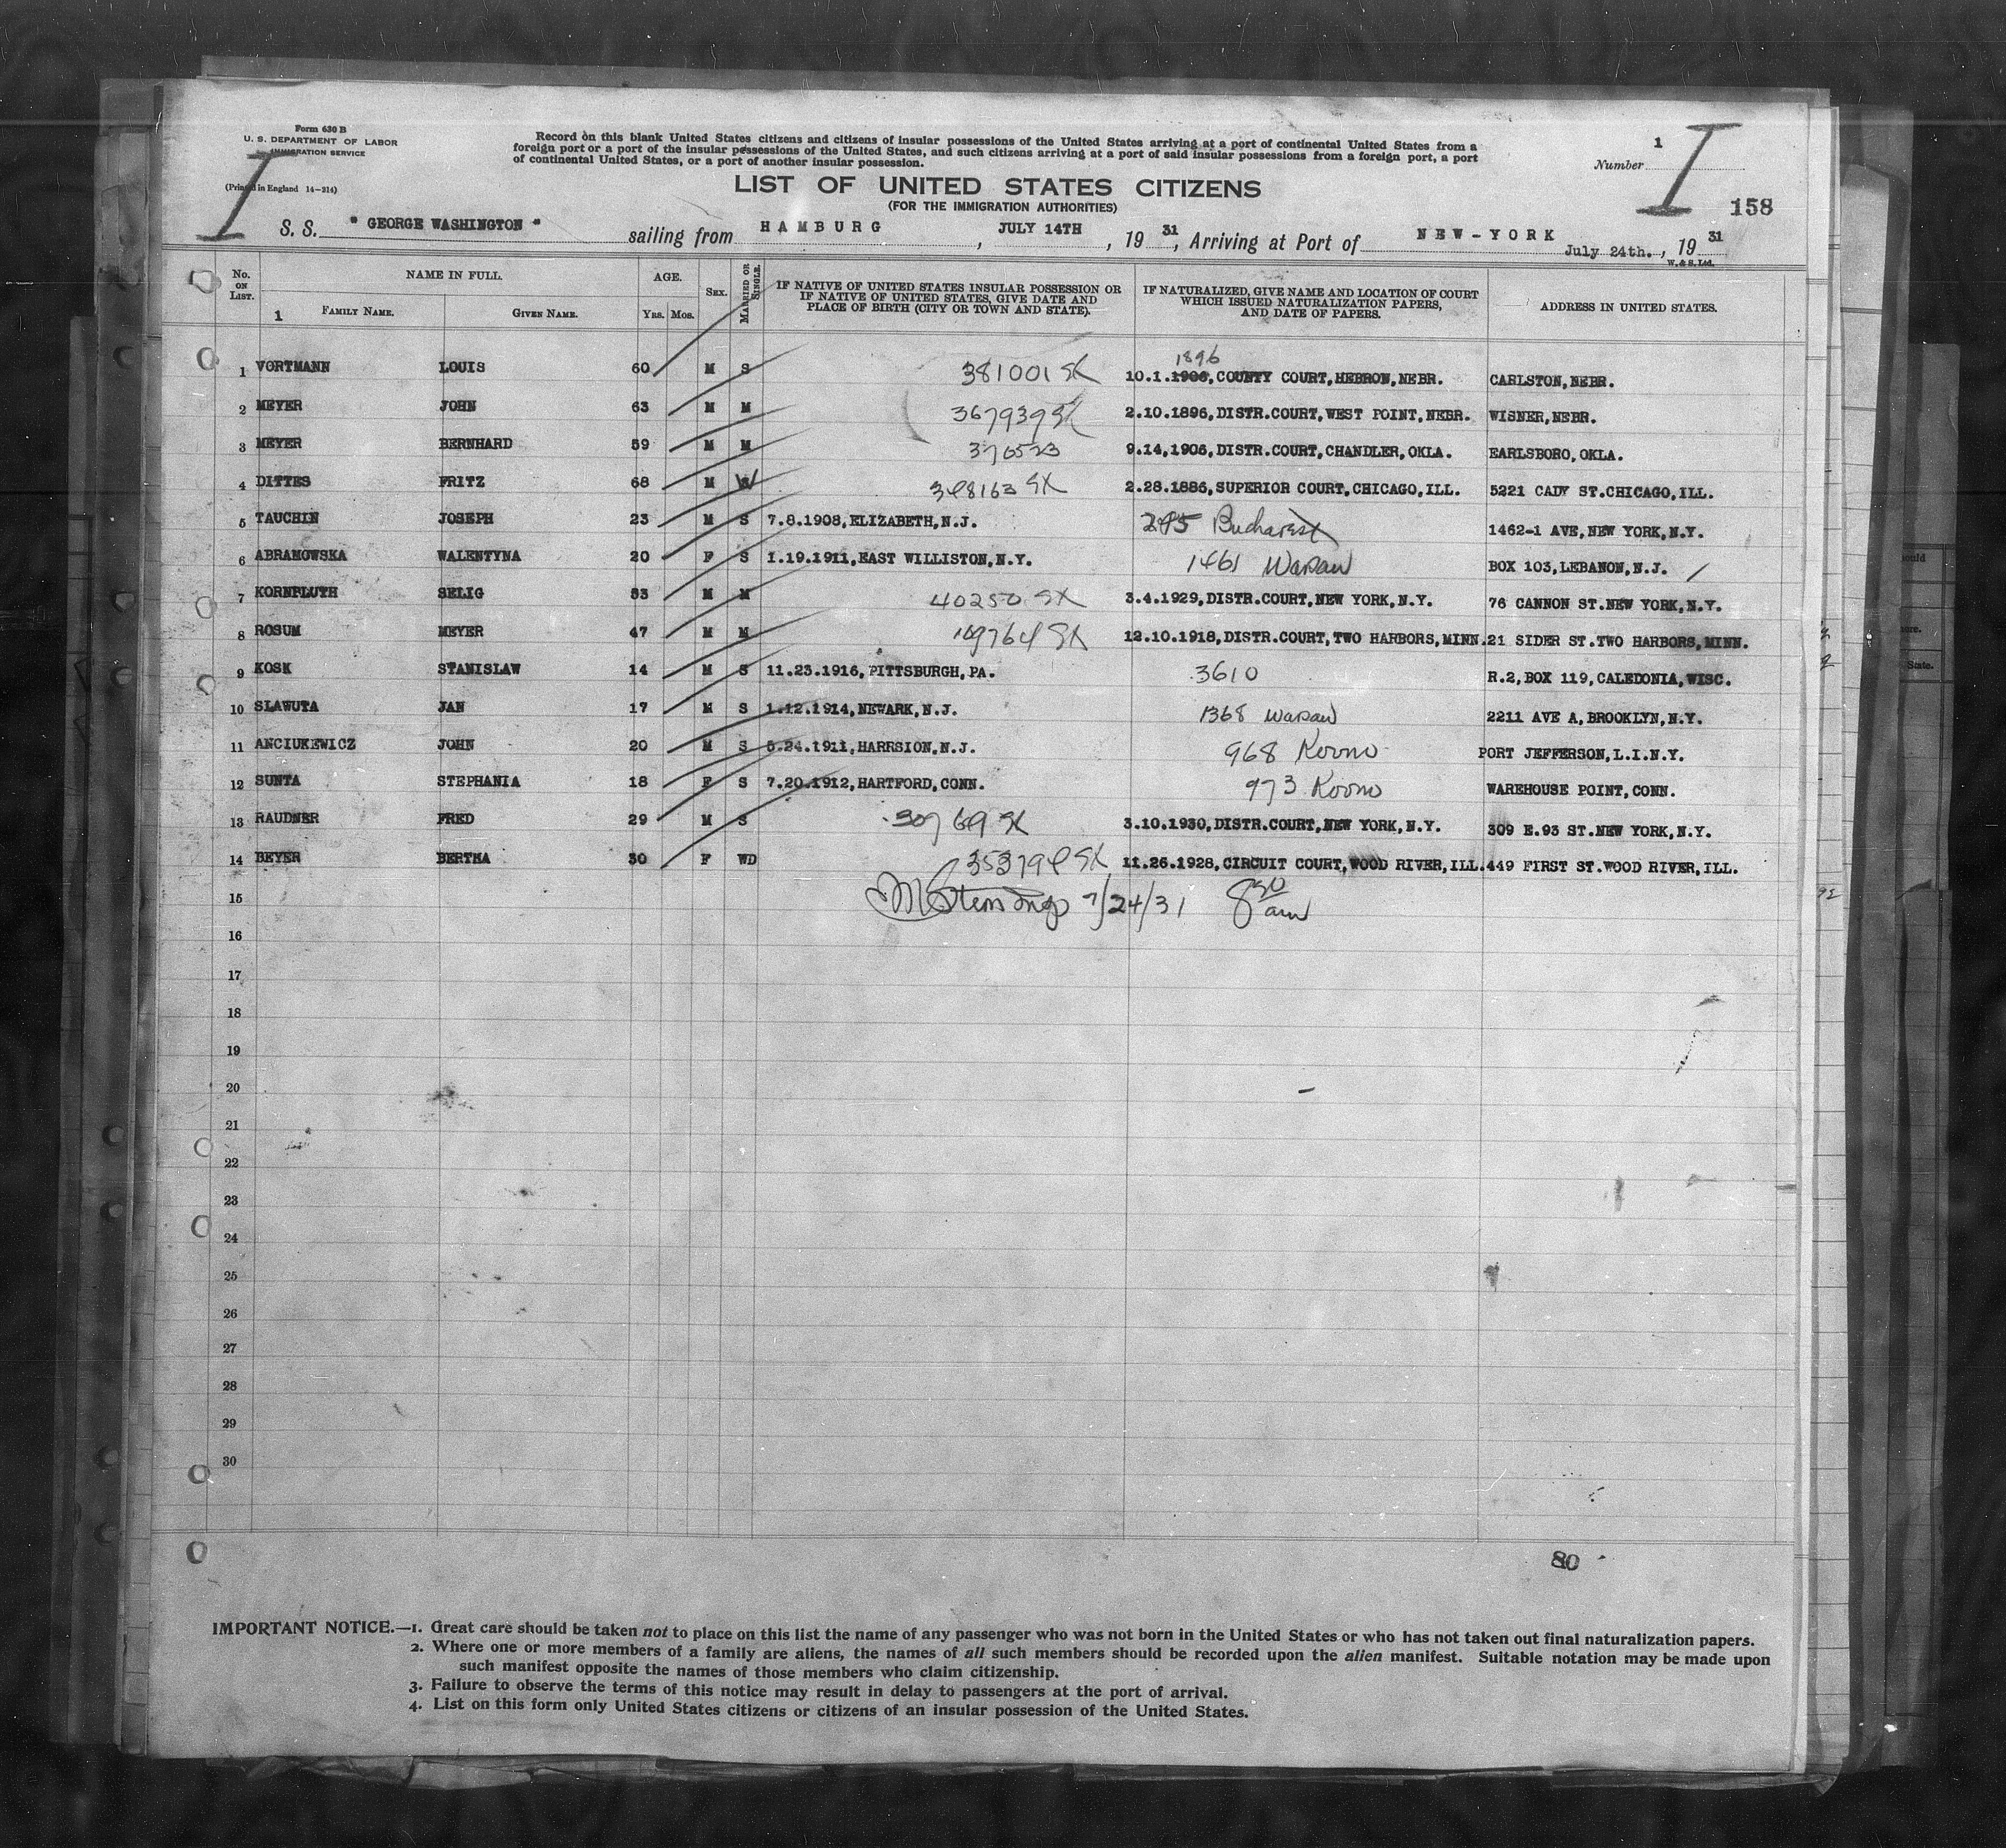 Form 630 B
U. S. DEPARTMENT OF LABOR
IMMIGRATION SERVICE
(Printed in England 14—214)
Record on this blank United States citizens and citizens of insular possessions of the United States arriving at a port of continental United States from a
foreign port or a port of the insular possessions of the United States, and such citizens arriving at a port of said insular possessions from a foreign port, a port
of continental United States, or a port of another insular possession.
Number 1
158
LIST OF UNITED STATES CITIZENS
(FOR THE IMMIGRATION AUTHORITIES)
S. S. " GEORGE WASHINGTON " sailing from HAMBURG, JULY 14TH, 19 31, Arriving at Port of NEW-YORK July 24th., 19 31
W. & S. Ltd.
No. ON LIST. NAME IN FULL. AGE. SEX. MARRIED OR SINGLE. IF NATIVE OF UNITED STATES INSULAR POSSESSION OR IF NATIVE OF UNITED STATES, GIVE DATE AND PLACE OF BIRTH (CITY OR TOWN AND STATE). IF NATURALIZED, GIVE NAME AND LOCATION OF COURT WHICH ISSUED NATURALIZATION PAPERS, AND DATE OF PAPERS. ADDRESS IN UNITED STATES.
1 FAMILY NAME. GIVEN NAME. YRS. MOS.
1896
1 VORTMANN LOUIS 60 M S 381001 SX 10.1.1906, COUNTY COURT, HEBRON, NEBR. CARLSTON, NEBR.
2 MEYER JOHN 63 M M 367939 SX 2.10.1896, DISTR.COURT, WEST POINT, NEBR. WISNER, NEBR.
3 MEYER BERNHARD 59 M M 376523 9.14,1906, DISTR.COURT, CHANDLER, OKLA. EARLSBORO, OKLA.
4 DITTES FRITZ 68 M W SX 2.28.1886, SUPERIOR COURT, CHICAGO, ILL. 5221 CADY ST.CHICAGO, ILL.
5 TAUCHIN JOSEPH 23 M S 7.8.1908, ELIZABETH, N.J. Bucharest 1462-1 AVE, NEW YORK, N.Y.
6 ABRAMOWSKA WALENTYNA 20 F S 1.19.1911, EAST WILLISTON, N.Y. 1461 Warsaw BOX 103, LEBANON, N.J.
7 KORNFLUTH SELIG 53 M M 40250 SX 3.4.1929, DISTR.COURT, NEW YORK, N.Y. 76 CANNON ST.NEW YORK, N.Y.
8 ROSUM MEYER 47 M M SX 12.10.1918, DISTR.COURT, TWO HARBORS, MINN. 21 SIDER ST.TWO HARBORS, MINN.
9 KOSK STANISLAW 14 M S 11.23.1916, PITTSBURGH, PA. 3610 R.2, BOX 119, CALEDONIA, WISC.
10 SLAWUTA JAN 17 M S 1.12.1914, NEWARK, N.J. 1368 Warsaw 2211 AVE A, BROOKLYN, N.Y.
11 ANCIUKEWICZ JOHN 20 M S 5.24.1911, HARRSION, N.J. 968 Kovno PORT JEFFERSON, L.I.N.Y.
12 SUNTA STEPHANIA 18 F S 7.20.1912, HARTFORD, CONN. 973 Kovno WAREHOUSE POINT, CONN.
13 RAUDNER FRED 29 M S 30769 SX 3.10.1930, DISTR.COURT, NEW YORK, N.Y. 309 E.93 ST.NEW YORK, N.Y.
14 BEYER BERTHA 30 F WD SX 11.26.1928, CIRCUIT COURT, WOOD RIVER, ILL. 449 FIRST ST.WOOD RIVER, ILL.
15 7/24/31 8 30 am
16
17
18
19
20
21
22
23
24
25
26
27
28
29
30
80
IMPORTANT NOTICE.—1. Great care should be taken not to place on this list the name of any passenger who was not born in the United States or who has not taken out final naturalization papers.
2. Where one or more members of a family are aliens, the names of all such members should be recorded upon the alien manifest. Suitable notation may be made upon
such manifest opposite the names of those members who claim citizenship.
3. Failure to observe the terms of this notice may result in delay to passengers at the port of arrival.
4. List on this form only United States citizens or citizens of an insular possession of the United States.